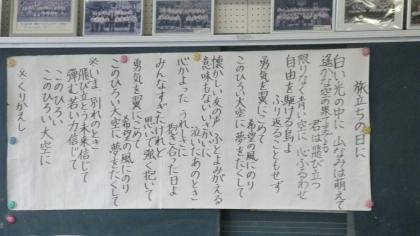 旅立ちの日に
白い光の中に 山なみは萌えて
遥かな空の果てまでも
君は飛び立つ
限りなく青い空に 心ふるわせ
自由を駆ける鳥よ
ふり返ることもせず
勇気を翼にこめて
希望の風にのり
このひろい大空に 夢をたくして
懐かしい友の声 ふとよみがえる
意味もないいさかいに
泣いたあのとき
心かよった うれしさに
抱き合った日よ
みんなすぎたけれど
思いで強く抱いて
勇気を翼にこめて
希望の風にのり
このひろい大空に 夢をたくして
※いま、別れのとき
飛び立とう未来信じて
弾む若い力信じて
このひろい
このひろい 大空に
※くりかえし